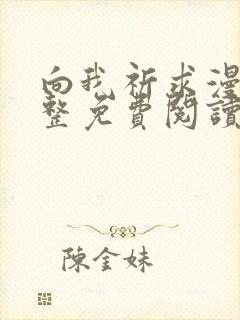 向我祈求漫
整免費閱讀
陳金妹